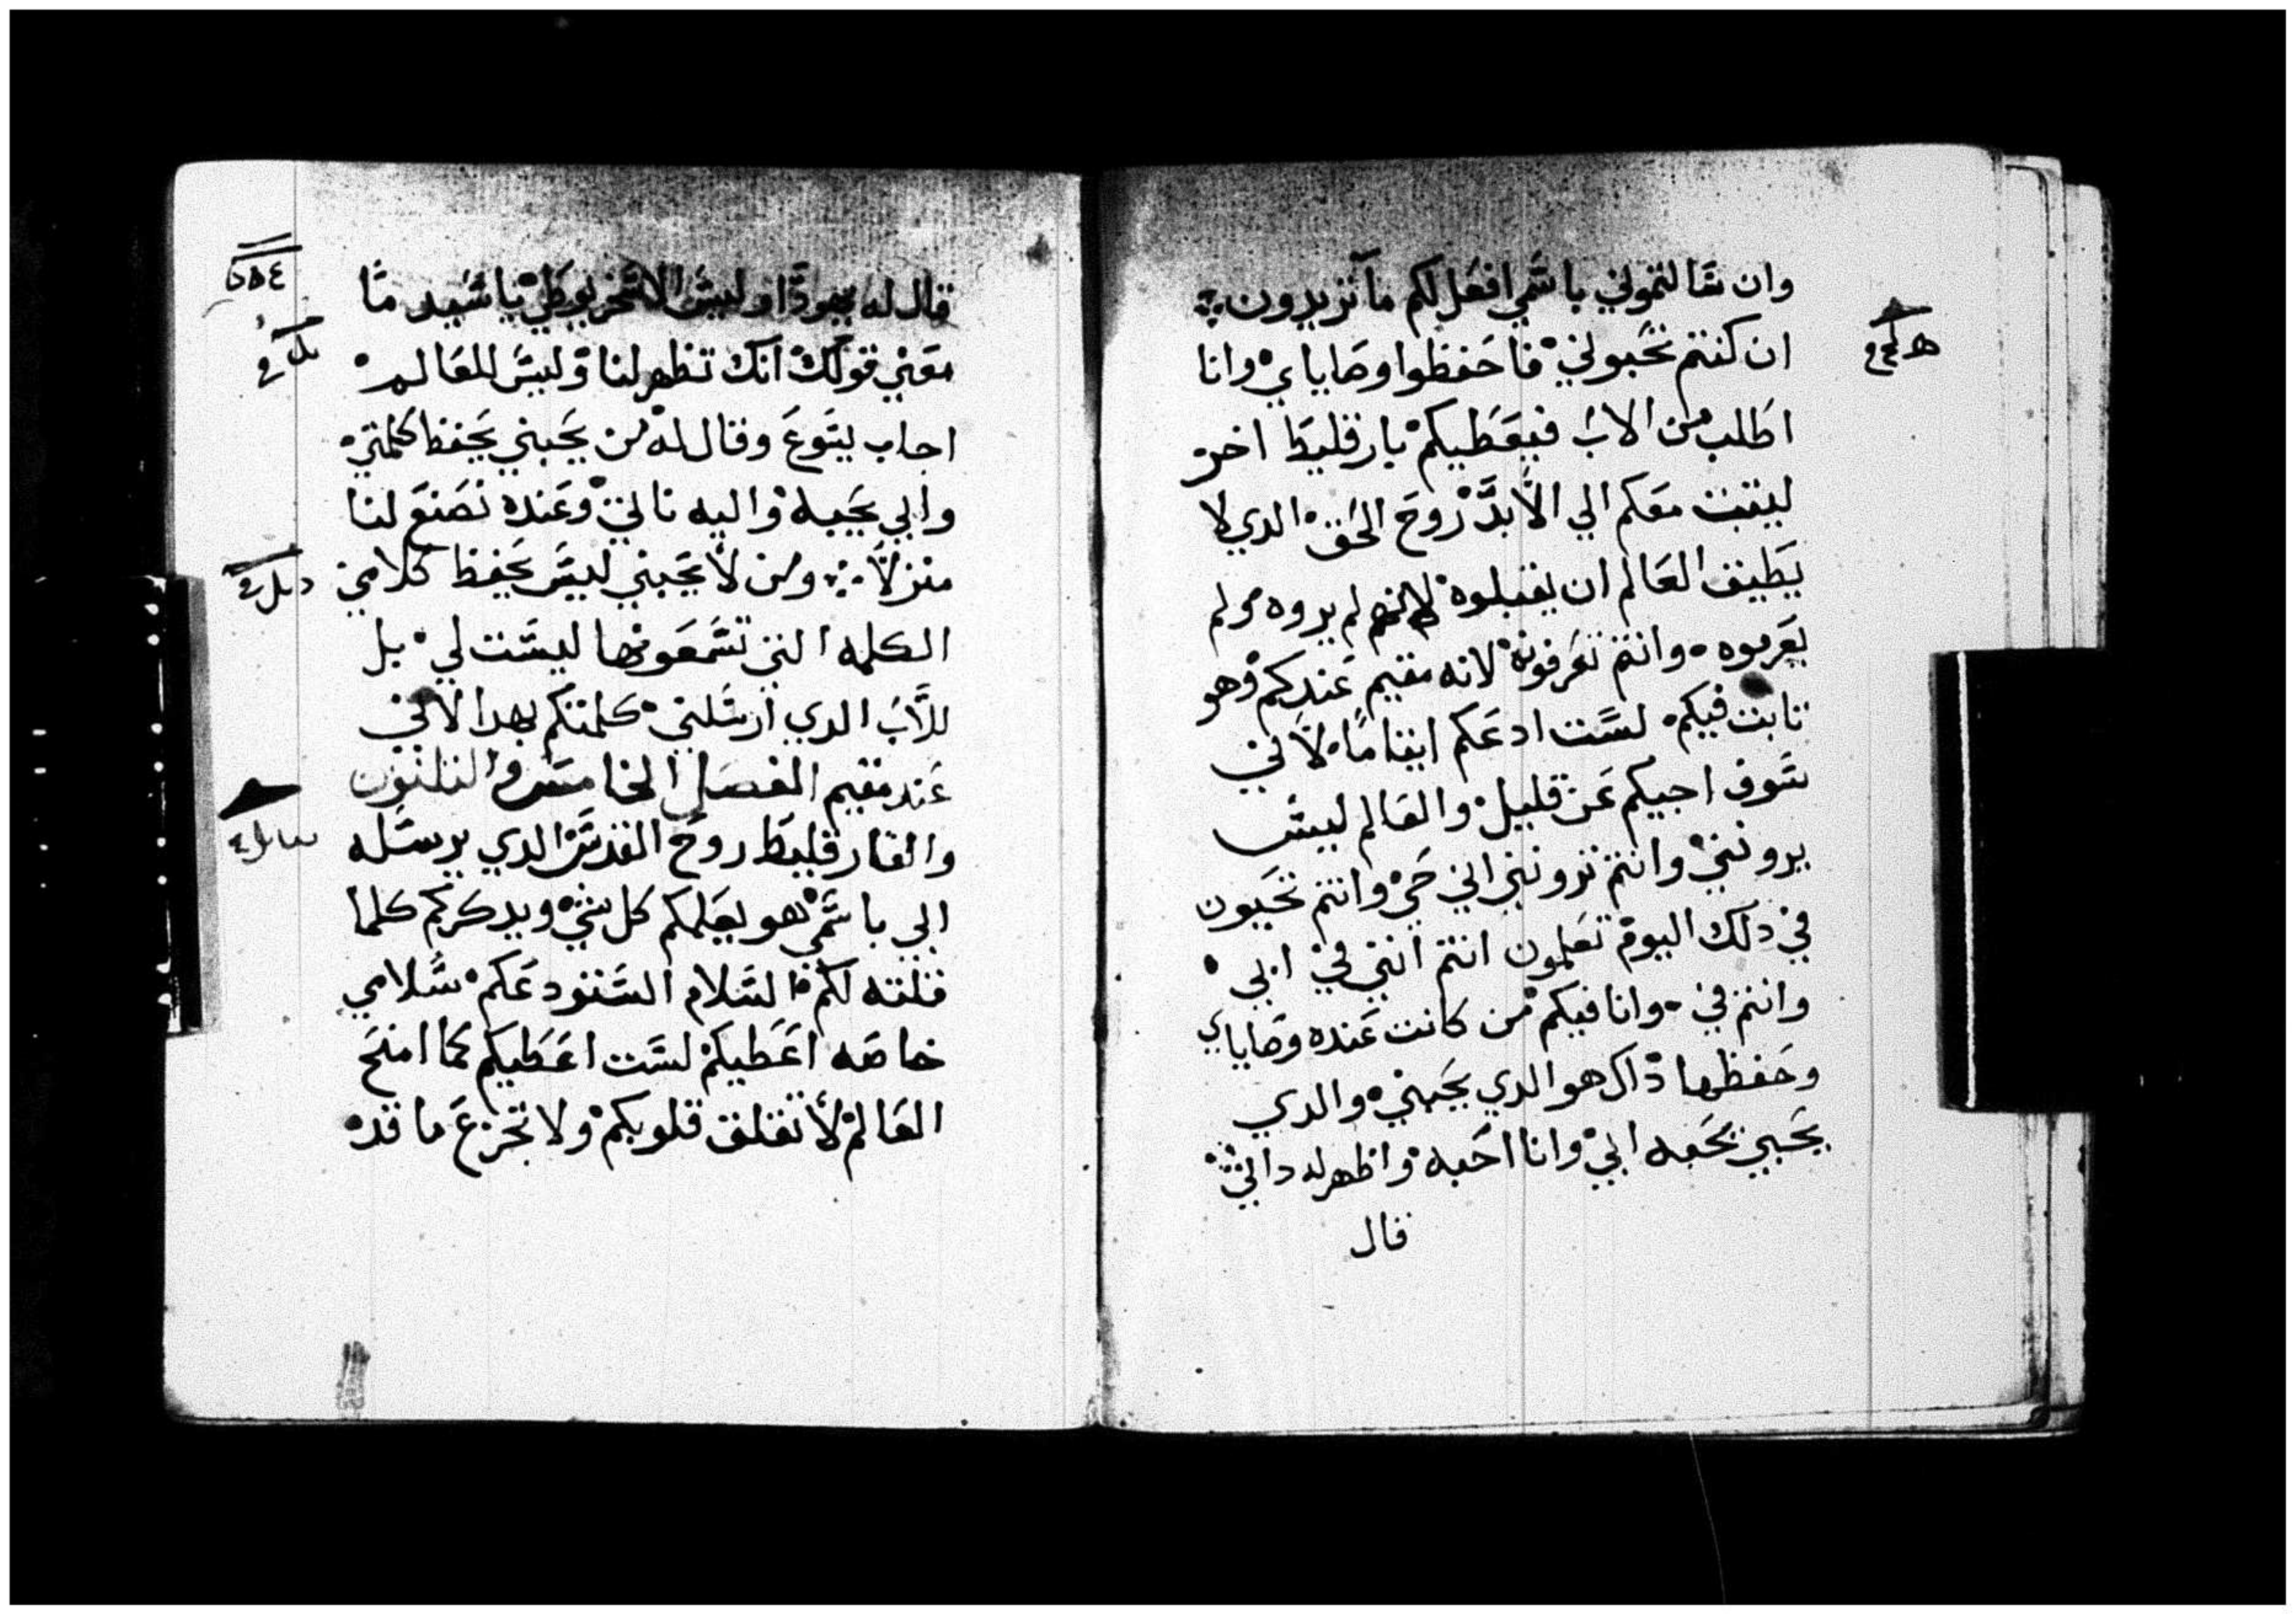 وان سالتموني باسمي افعل لكم ما تريدون
ان كنتم تحبوني فاحفظوا وصاياي وانا
اطلب من الاب فيعطيكم بارقليط اخر
ليتبت معكم الي الابد روح الحق الدي لا
يطيق العالم ان يقبلوه لانهم لم يروه ولم
يعرفوه وانتم تعرفونه لانه مقيم عندكم وهو
تابت فيكم لست ادعكم ايتاما لاني
سوف اجيكم عن قليل والعالم ليس
يرونني وانتم ترونني اني حي وانتم تحيون
في دلك اليوم تعلمون انتم انني في ابي
وانتم في وانا فيكم من كانت عنده وصاياي
وحفظها داك هو الدي يحبني والدي
يحبني يحبه ابي وانا احبه واظهر له داتي
قال
قال له يهودا وليس الاسخريوطي ياسيد ما
معني قولك انك تظهر لنا وليس للعالم
اجاب يسوع وقال له من يحبني يحفظ كلمتي
وابي يحبه واليه ناتي وعنده نصنع لنا
منزلا ومن لا يحبني ليس يحفظ كلامي
الكلمه التي تسمعونها ليست لي بل
للاب الدي ارسلني كلمتكم بهدا لاني
عند مقيم الفصل الخامس والتلتون
والفارقليط روح القدس الدي يرسله
ابي باسمي هو يعلمكم كل شي ويدكركم كلما
قلته لكم السلام استودعكم سلامي
خاصه اعطيكم لست اعطيكم كما امنح
العالم لا تقلق قلوبكم ولا تجزع ما قد